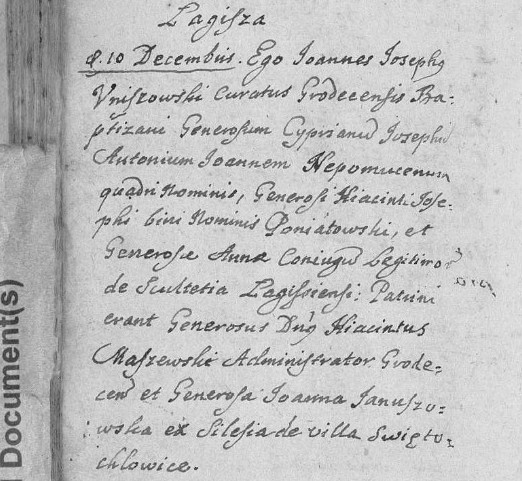 Lagisza
d. 10 Decembris. Ego Joannes Josephq
Vniszowski Curatus Grodecensis Ba-
ptizavi Generosum Cyprianū Josephū
Antonium Joannem Nepomucenum
quadri Nominis, Generosi Hiacinti Jose-
phi bini Nominis Poniatowski, et
Generosae Annae Coniugū Legitimor
de Scultetia Lagissiensi: Patrini
erant Generosus Dnq Hiacintus
Maszewski Administrator Grode-
cen et Generosa Joanna Januszo-
wska ex Silesia de villa Swięto-
chlowice.
Document(s)